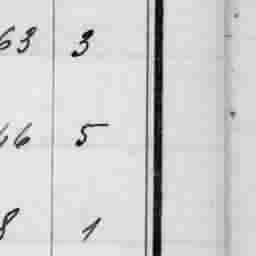 63 3
66 5
8 1